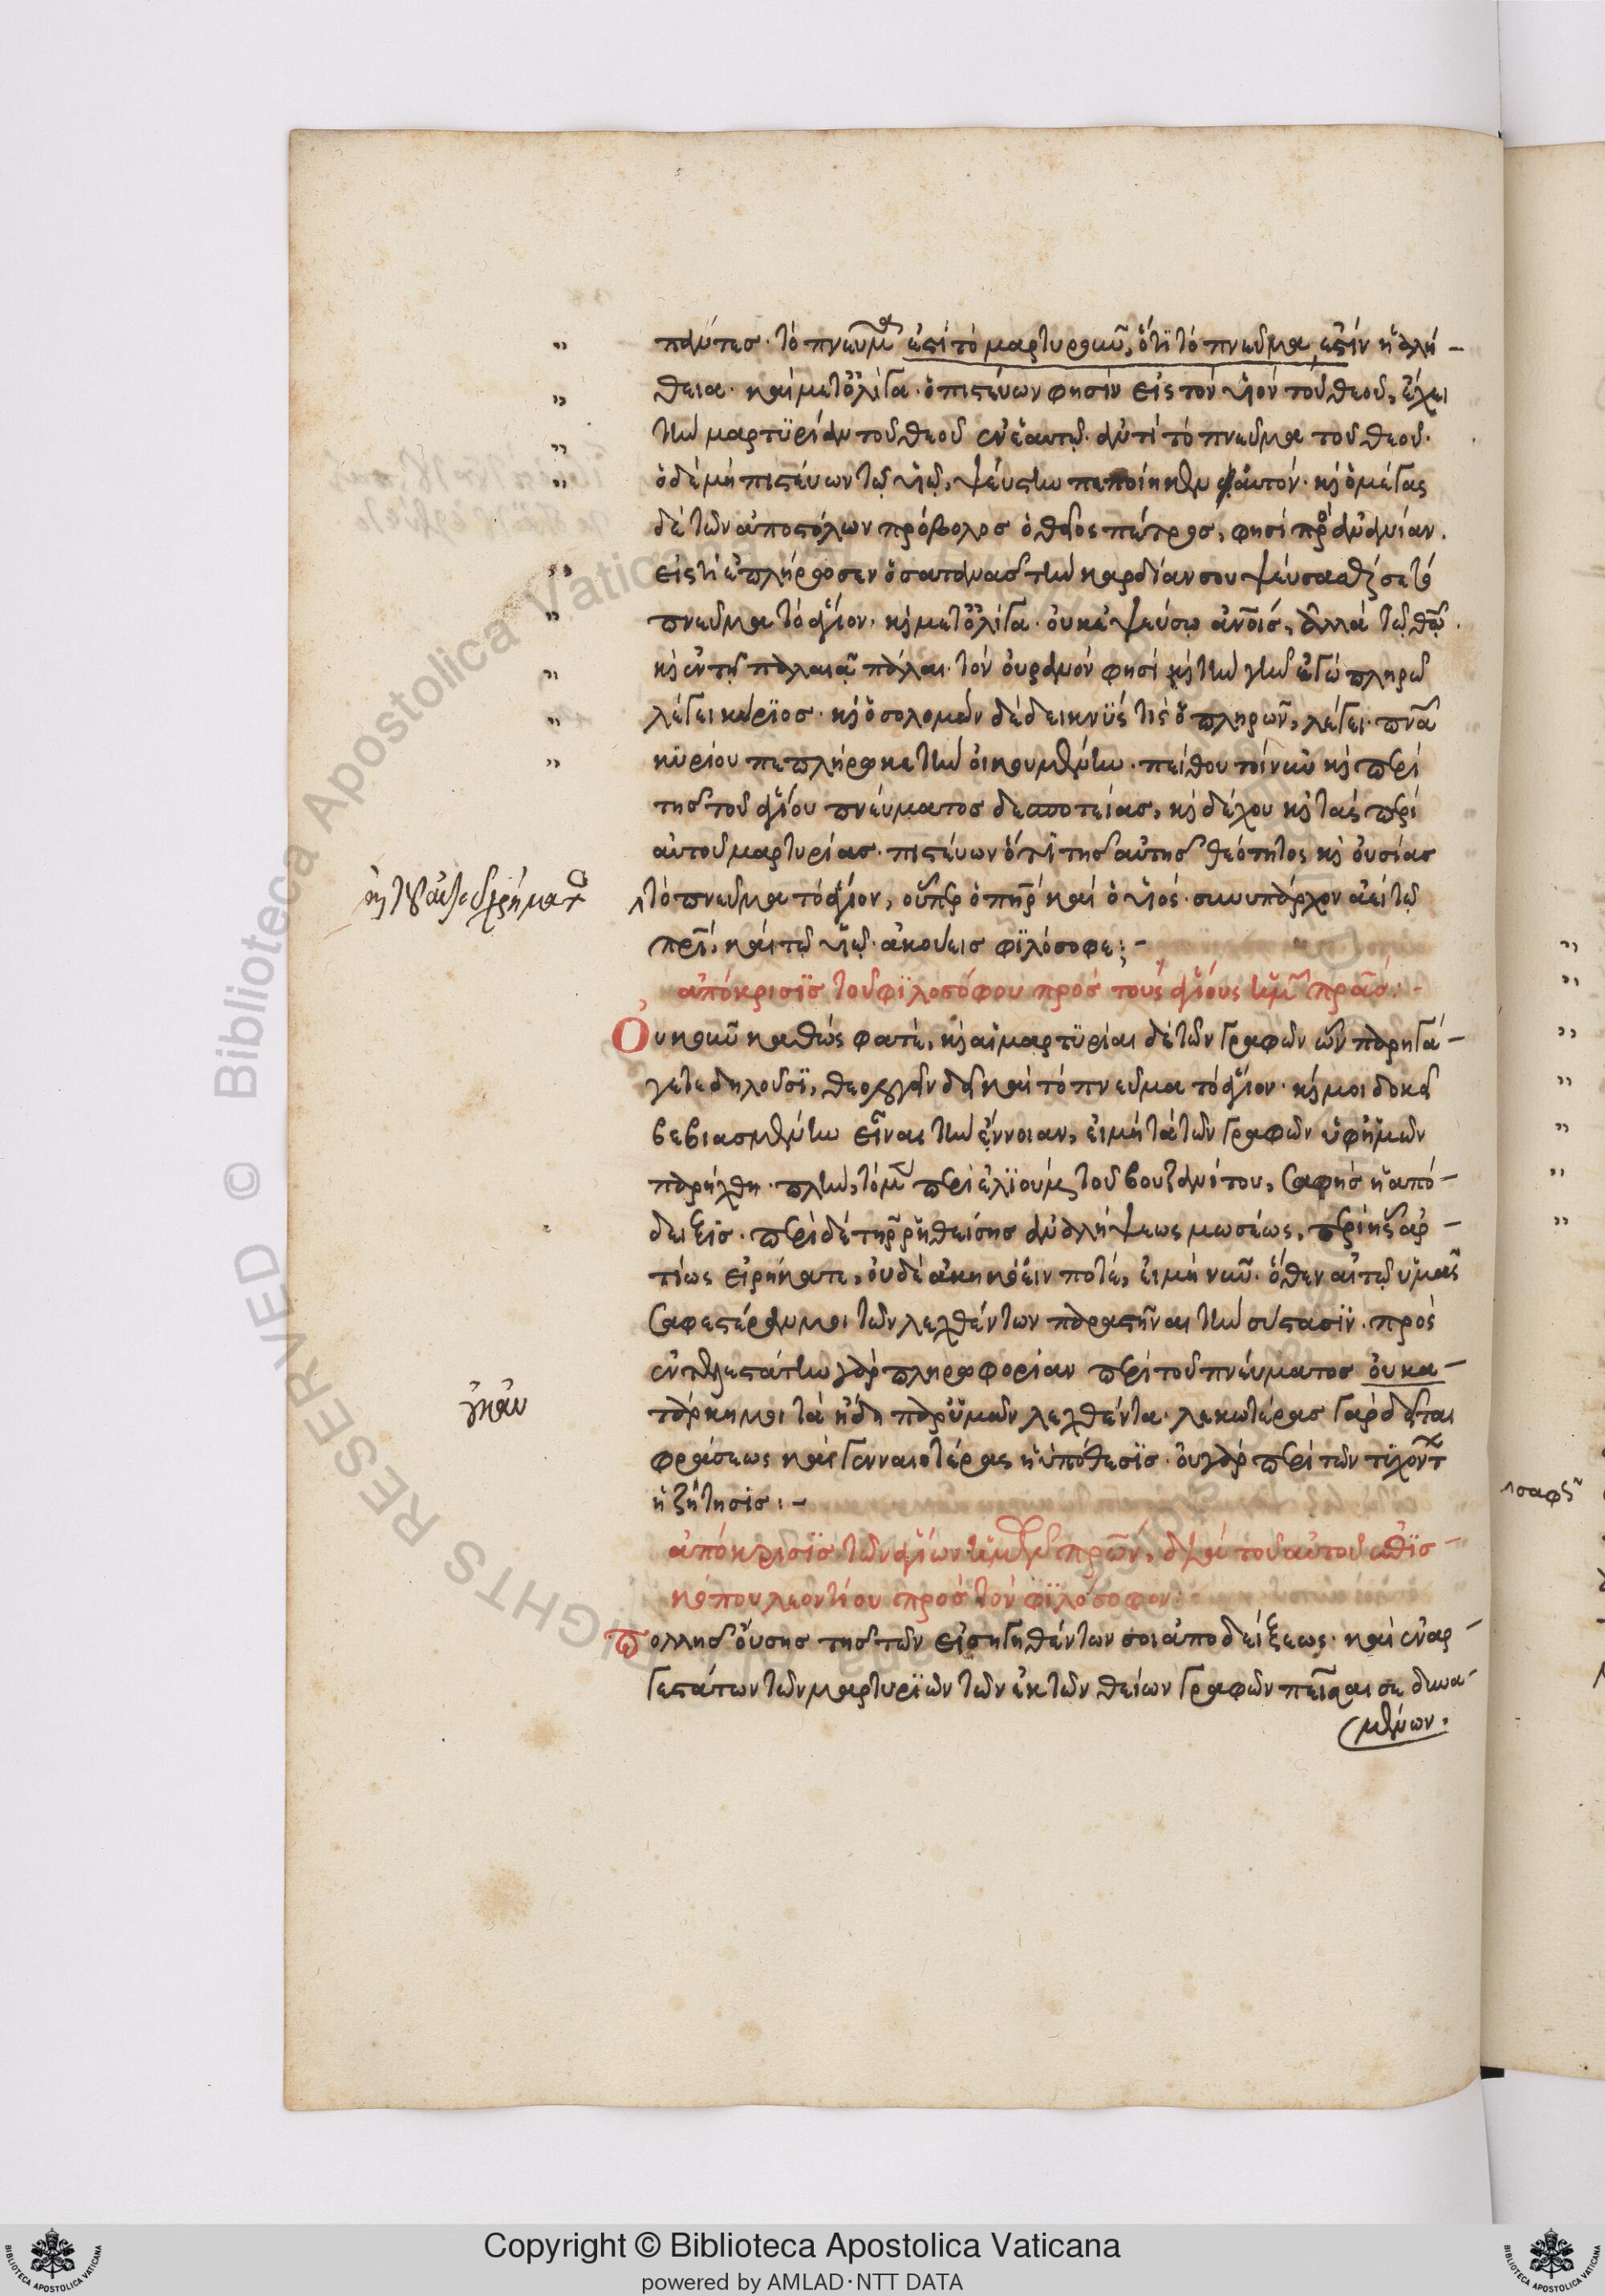 πάντες· τὸ πνεῦμα ἐστὶ τὸ μαρτυροῦν, ὅτι τὸ πνεῦμα ἐστὶν ἡ ἀλή-
θεια· καὶ μετ᾽ ὀλίγα· ὁ πιστεύων φησὶν εἰς τὸν υἱὸν τοῦ θεοῦ, ἔχει
τὴν μαρτυρίαν τοῦ θεοῦ ἐν ἑαυτῷ· ἀντὶ τὸ πνεῦμα τοῦ θεοῦ·
ὁ δὲ μὴ πιστεύων τῷ υἱῷ, ψεύστην πεποίηκεν αὐτόν· καὶ ὁ μέγας
δὲ τῶν ἀποστόλων πρόβολος ὁ θεῖος πέτρος, φησὶ πρὸς ἀνανίαν.
εἰς τί ἐπλήρωσεν ὁ σατανᾶς τὴν καρδίαν σου ψεύσασθαί σε τὸ
πνεῦμα τὸ ἅγιον· καὶ μετ᾽ ὀλίγα· οὐκ ἐψεύσω ἀνοις, ἀλλὰ τῷ θῶ.
καὶ ἐν τῇ παλαιᾷ πάλαι· τὸν οὐρανόν φησι καὶ τὴν γῆν ἐγὼ πληρῶ
λέγει κύριος· καὶ ὁ σολομὼν δὲ δεικνὺς τίς ὁ πληρῶν, λέγει· πνα
κυρίου πεπλήρωκε τὴν οἰκουμένην· πείθου τοίνυν καὶ περὶ
τῆς τοῦ ἁγίου πνεύματος δεσποτείας, καὶ δέχου καὶ τὰς περὶ
αὐτοῦ μαρτυρίας· πιστεύων ὅτι τῆς αὐτῆς θεότητος καὶ οὐσίας
τὸ πνεῦμα τὸ ἅγιον, οὗπερ ὁ πηρ καὶ ὁ υἱός· συνυπάρχον ἀεὶ τῷ
πρι, καὶ τῷ υἱῷ· ἀκούεις φιλόσοφε; -
ἀπόκρισις τοῦ φιλοσόφου πρὸς τοὺς ἁγίους ἡμῶν πρας· -
Οὐκοῦν καθὼς φατὲ, καὶ αἱ μαρτυρίαι δὲ τῶν γραφῶν ὧν παρηγά-
γετε δηλοῦσι, θεολογεῖν δεῖ καὶ τὸ πνεῦμα τὸ ἅγιον· καί μοι δοκεῖ
βεβιασμένην εἶναι τὴν ἔννοιαν, εἰ μὴ τὰ τῶν γραφῶν ὑφ᾽ ἡμῶν
παρήχθη· πλὴν, τὸ μὲν περὶ ἐλιοὺμ τοῦ βουζανίτου, σαφὴς ἡ ἀπό-
δειξις· περὶ δὲ τῆς ῥηθείσης ἀναλήψεως μωσέως, περὶ ἧς ἀρ-
τίως εἰρήκατε, οὐδὲ ἀκηκόειν ποτέ, εἰ μὴ νῦν· ὅθεν αἰτῶ ὑμᾶς
σαφεστέραν μοι τῶν λεχθέντων παραστῆναι τὴν σύστασιν· πρὸς
ἐντελεστάτην γὰρ πληροφορίαν περὶ τοῦ πνεύματος οὐκ ἀ-
πόχρη μοι τὰ ἤδη παρ᾽ ὑμῶν λεχθέντα· λευκοτέρας γὰρ δεῖται
φράσεως καὶ γενναιοτέρας ἡ ὑπόθεσις· οὐ γὰρ περὶ τῶν τυχόντ
ἡ ζήτησις: -
ἀπόκρισις τῶν ἁγίων ἡμῶν πρων, διὰ τοῦ αὐτοῦ ἐπισ-
κόπου λεοντίου πρὸς τὸν φιλόσοφον·
πολλῆς οὔσης τῆς τῶν εἰσηγηθέντων σοι ἀποδείξεως· καὶ ἐναρ-
γεστάτων τῶν μαρτυριῶν τῶν ἐκ τῶν θείων γραφῶν πεῖσαι σε δυνα-
μένων.
Copyright © Biblioteca Apostolica Vaticana
powered by AMLAD·NTT DATA